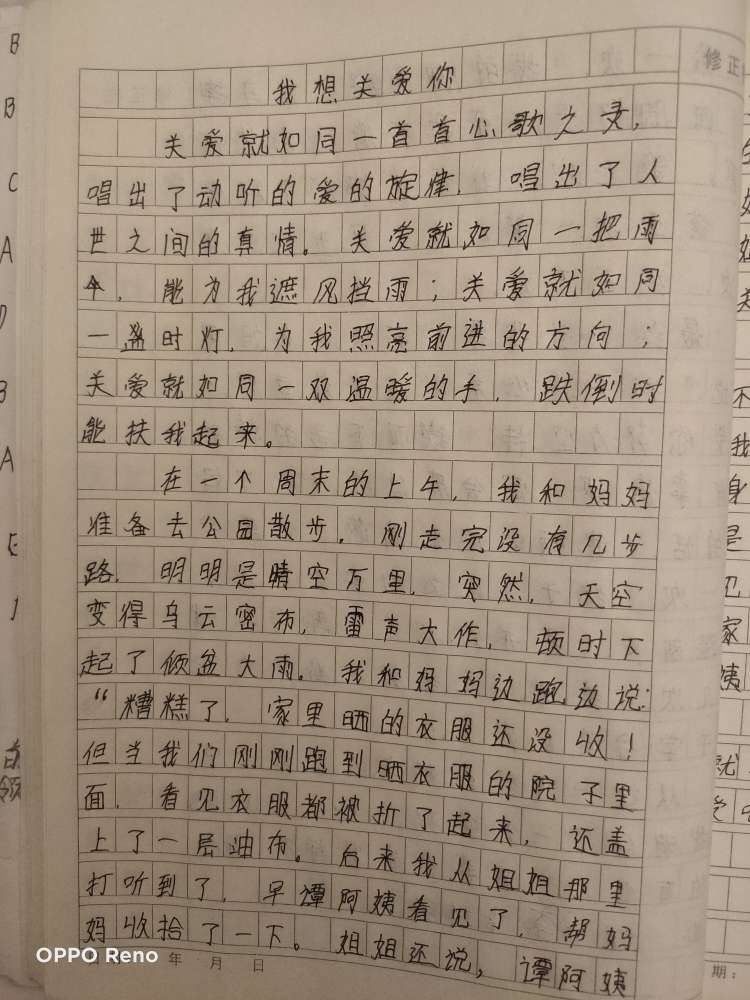 我想关爱你
关爱就如同一首首心歌之灵，
唱出了动听的爱的旋律，唱出了人
世之间的真情。关爱就如同一把雨
伞，能为我遮风挡雨；关爱就如同
一盏时灯，为我照亮前进的方向；
关爱就如同一双温暖的手，跌倒时
能扶我起来。
在一个周末的上午，我和妈妈
准备去公园散步。刚走完没有几步
路，明明是晴空万里，突然，天空
变得乌云密布，雷声大作，顿时下
起了倾盆大雨。我和妈妈边跑边说：
“糟糕了，家里晒的衣服还没收！
但当我们刚刚跑到晒衣服的院子里
面，看见衣服都被折了起来，还盖
上了一层油布。后来我从姐姐那里
打听到了，早谭阿姨看见了，帮妈
妈收拾了一下。姐姐还说，谭阿姨
年 月 日
OPPO Reno
修正
期：
B
B
C
A
B
A